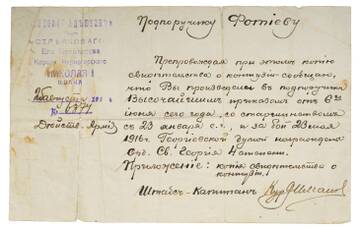 Подпоручику Фотіеву
СТРѢЛКОВАГО
Его Величества
Короля Черногорскаго
НИКОЛАЯ I
ПОЛКА
№ 6374
Дѣйств. Армія
Препровождая при этомъ копію
свидѣтельства о контузіи сообщаю,
что Вы произведены въ подпоручики
Высочайшимъ приказомъ отъ 6го
іюня сего года, со старшинствомъ
съ 23 января с.г., и за бой 23 мая
1916г. Георгіевской Думой награждены
Орд. Св. Георгія 4 степени.
Приложеніе: копія свидѣтельства о
контузіи.
Штабсъ-Капитанъ